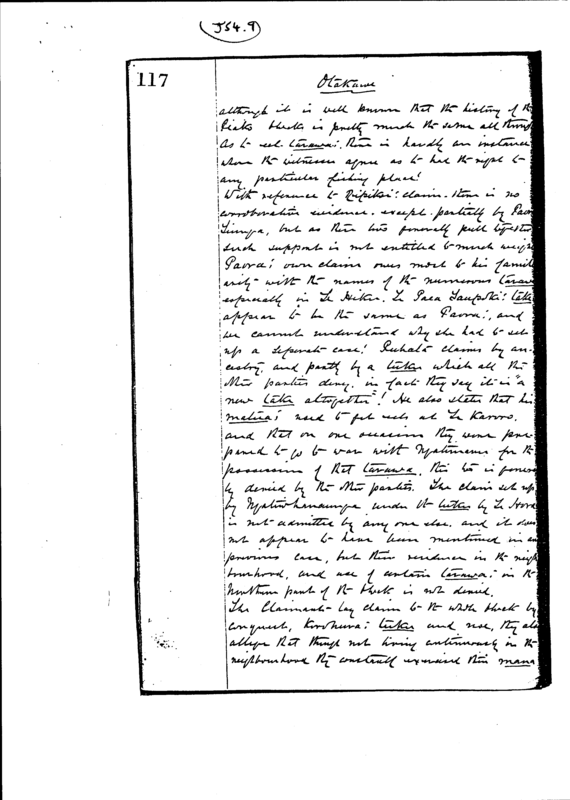 J54.9
117
Otakawe
although it is well known that the history of the
Piako blocks is pretty much the same all through
As to eel tarawas there is hardly an instance
where the witnesses agree as to who had the right to
any particular fishing place.
With reference to claim there is no
corroborative evidence except partially by Paora
Tiunga, but as this was generally
such support is not entitled to much weight
Paora's own claim owes most to his famil
iarity with the names of the numerous tarawas
especially in Te Hikur. Te Paea take
appear to be the same as Paora's, and
we cannot understand why she had to set
up a separate case. claims by an-
cestry, and partly by a tuku which all the
other parties deny, in fact they say it is "a
new take altogether"! He also states that his
matua's used to fish eels at Te Karoro
and that on one occasion they were pre-
pared to go to war with for the
possession of that tarawa, this too is general
ly denied by the other parties. The claim set up
by under the tuku by Te Hora
is not admitted by any one else, and it does
not appear to have been mentioned in any
previous case, but their residence in the neigh
bourhood, and use of certain tarawas in the
Northern part of the block is not denied.
The Claimants lay claim to the whole block by
conquest, tuku and use, they also
allege that though not living continuously in the
neighbourhood they constantly exercised their mana